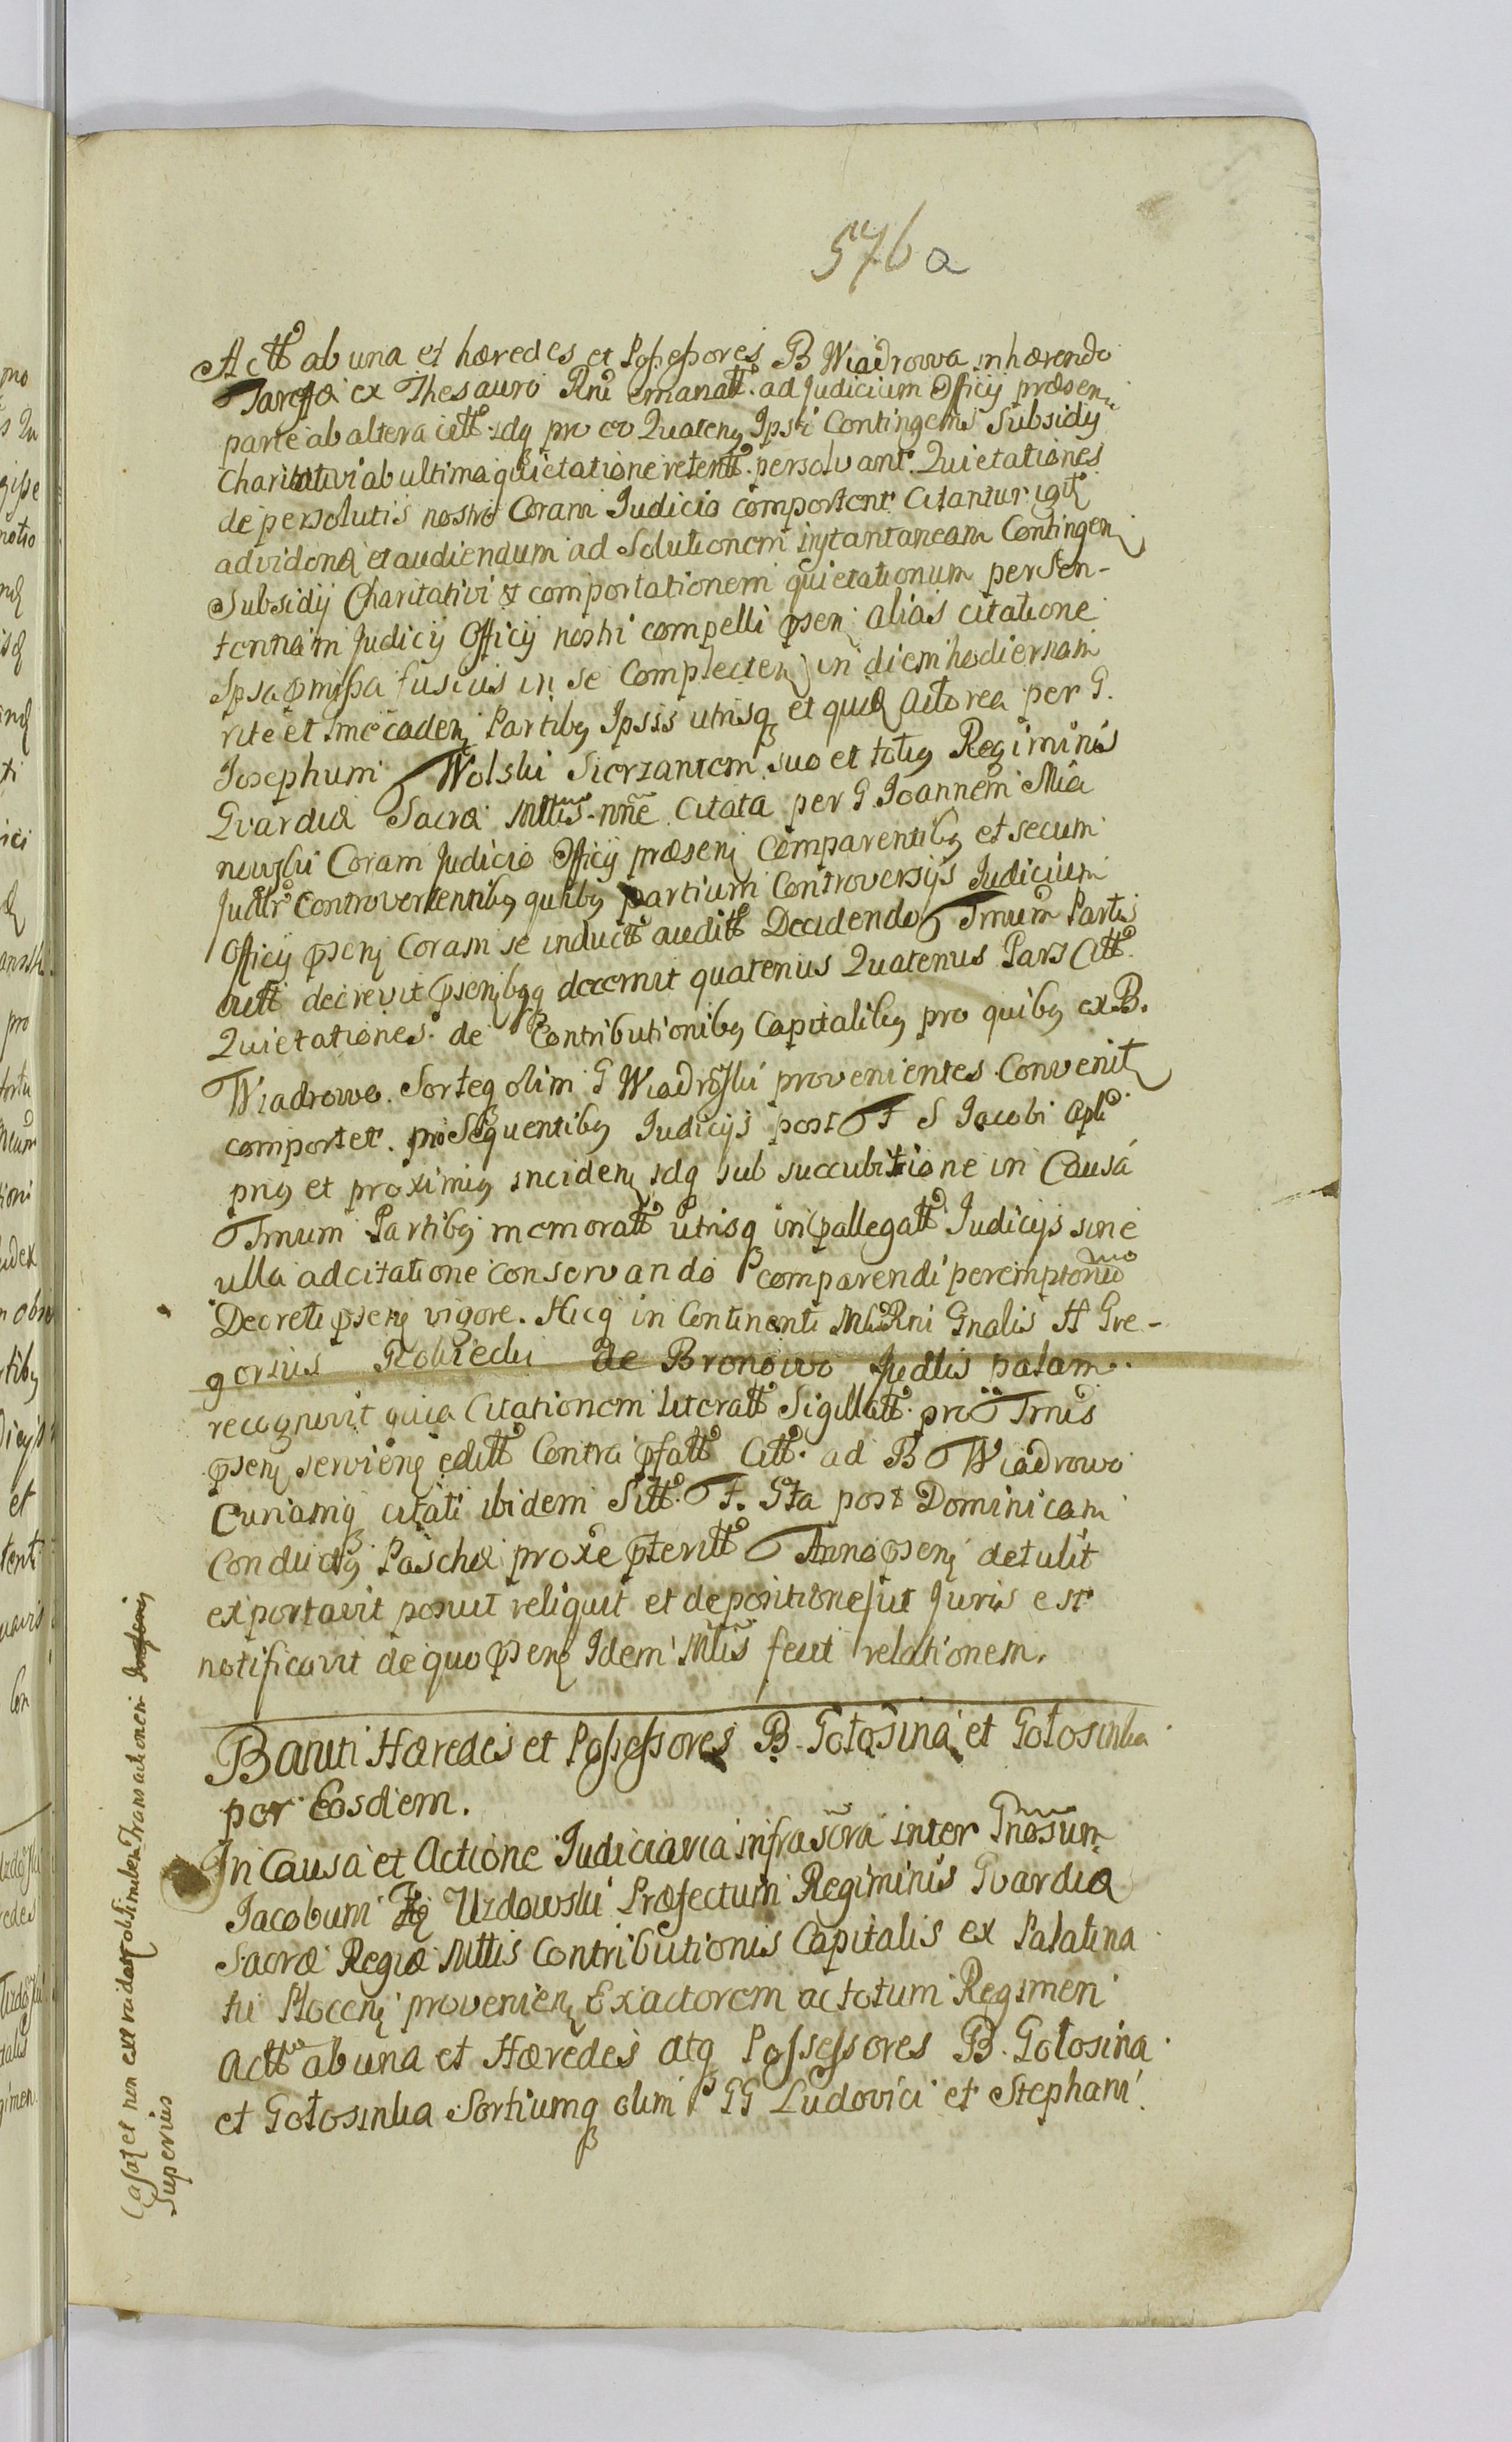 576 a
Actt ab una et hæredes et Possessores B Wiadrowa inhærendo
Tariffæ ex Thesauro Rni emanatt. ad Judicium Officij præsen
parte ab altera citt idq pro eo Quateng Ipsi Contingens Subsidij
Charitativi ab ultima quietatione retentt. persolvant. Quietationes
de persolutis nostro Coram Judicio comportent Citantur igit
ad vidend et audiendum ad Solutionem instantaneam Contingen
Subsidij Charitativi et comportationem quietationum per Sen-
tentiam Judicij Officij nostri compelli psen alias citatione
Ipsa pmissa fusius in se Complecten in diem hodiernam
rite et inciden Partibg Ipsis utrisq et quid Actorea per G.
Josephum Wolski Sierzantem suo et totig Regiminis
Gvardiæ Sacræ Mttis nne Citata per G. Joannem Mia
nowski Coram Judicio Officij præsen Comparentibg et secum
Judlr Controvertentibg quibg partium Controversijs Judicium
Officij psen Coram se induct auditt Decidendo Tmum Parti
citt decrevit psenbgq decernit quatenus Quatenus Pars Citt
Quietationes de Contributionibg Capitalibg pro quibg ex B.
Wiadrowo Sorteq olim G Wiadroski provenientes Convenit
comportet. pro Sequentibg Judicijs post F S Jacobi Apli
prig et proximig inciden idq sub succubitione in Causa
Tmum Partibg memoratt utrisq in pallegatt Judicijs sine
ulla adcitatione conservando comparendi peremptorio
Decreti psen vigore. Hicq in Continenti Mtis Rni Gnalis H Gre-
gorius Robiedu de Bronowo Judlis palam.
recognovit quia Citationem literatt Sigillatt pro Tmis
psen servien editt Contra pfatt Citt. ad B Wiadrowo
Curiamq citati ibidem Sitt. F. Sta post Dominicam
Conductg Paschæ proxe pteritt Anno psen detulit
exportavit posuit reliquit et depositione ut Juris est
notificavit de quo psen Idem Mtis fecit relationem.
Baniti Hæredes et Possessores B. Gołosina et Gołosinka
per Eosdem.
In Causa et Actione Judiciaria infrascra inter Gnosum
Jacobum Uzdowski Præfectum Regiminis Gvardiæ
Sacræ Regiæ Mttis Contributionis Capitalis ex Palatina
tu Plocen provenien Exactorem ac totum Regimen
Actt ab una et Hæredes atq Possessores B. Gołosina
et Gołosinka Sortiumq olim GG Ludovici et Stephani
Casat et non extradat ob Transactionem
Superius